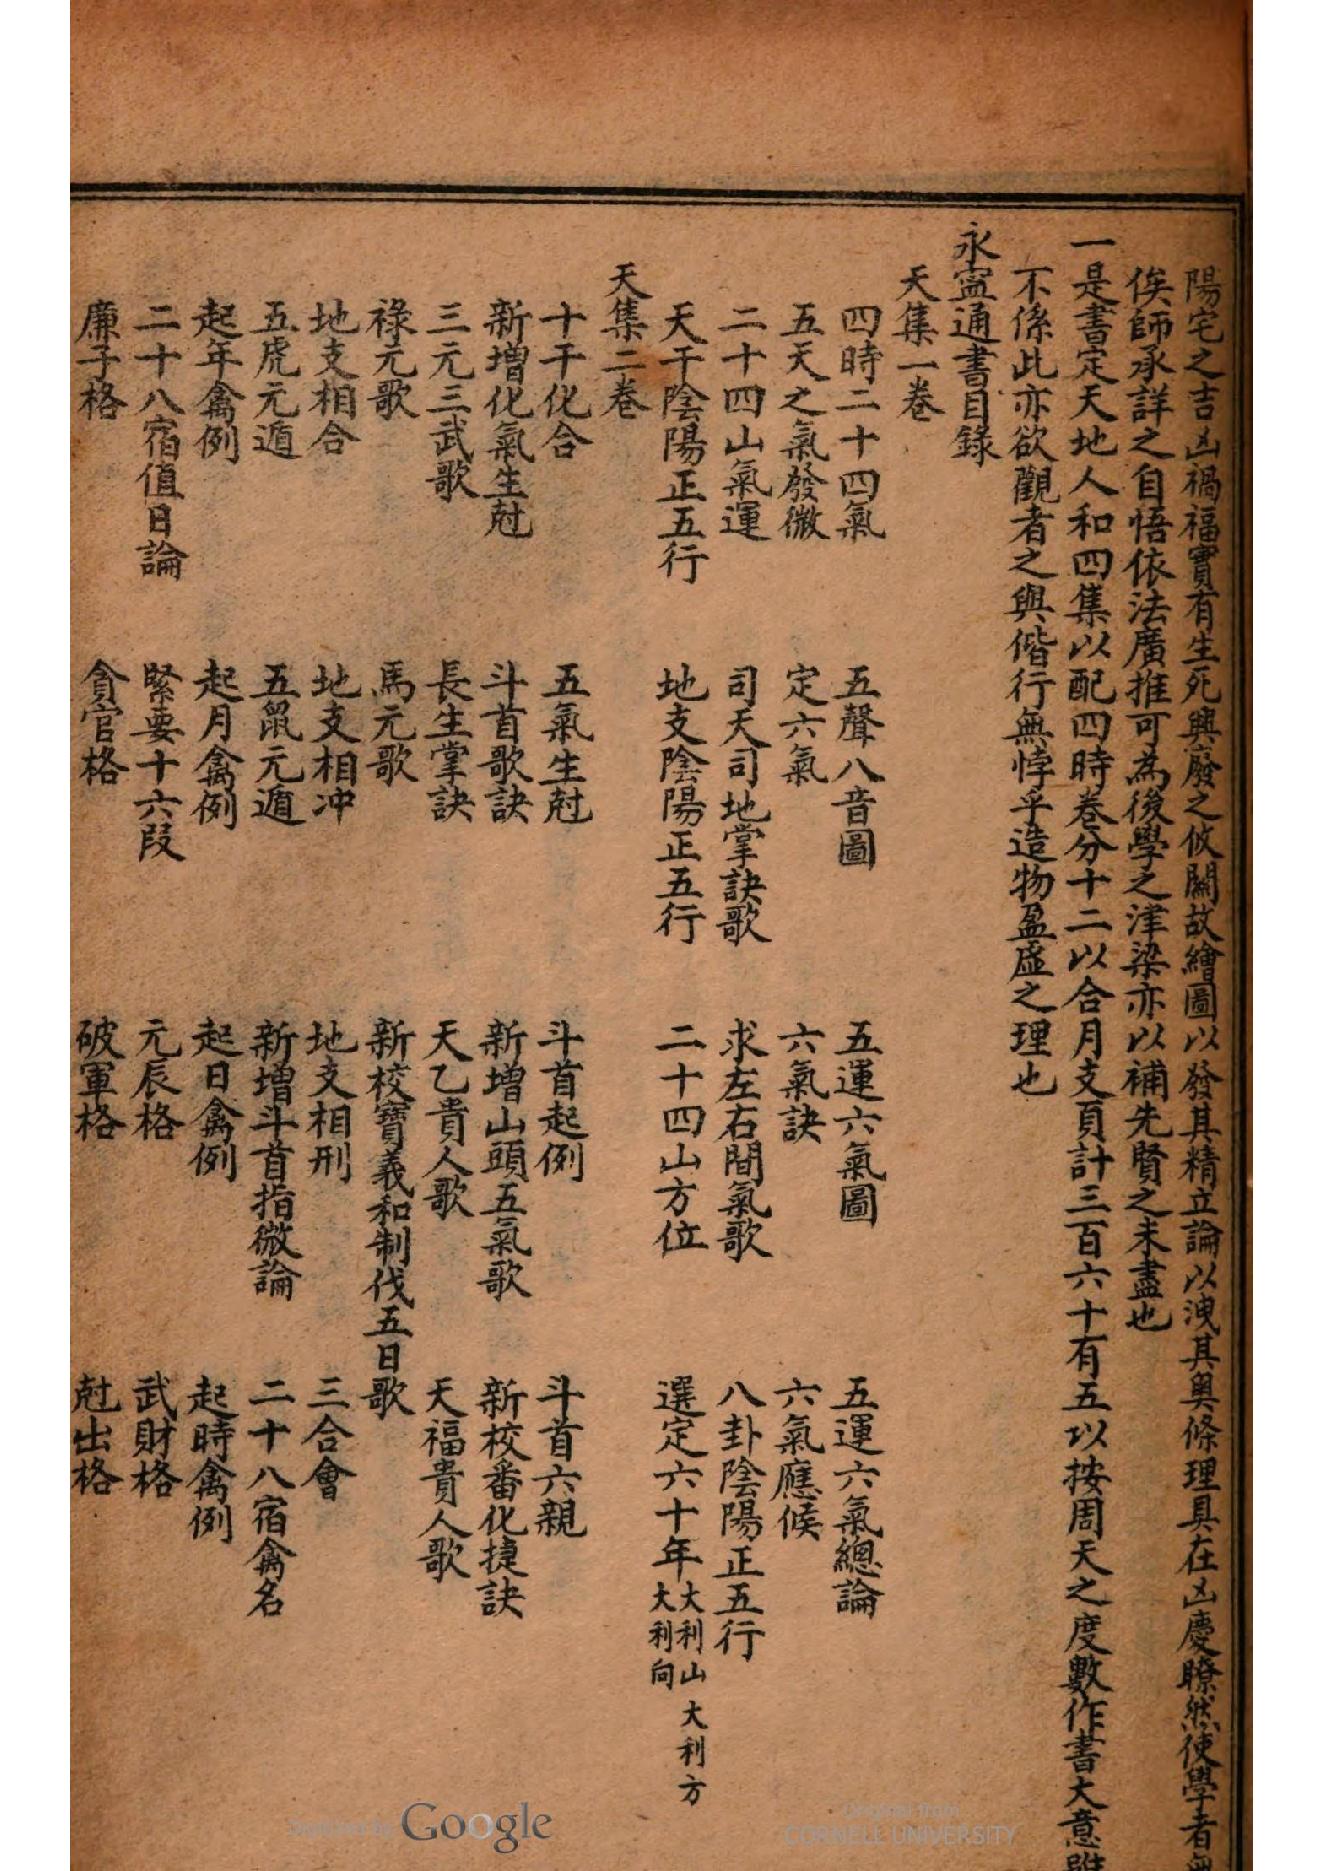 陽宅之吉凶禍福實有生死興廢之攸關故繪圖以發其精立論以洩其奧條理具在凶慶瞭然使學者
俟師承詳之自悟依法廣推可為後學之津梁亦以補先賢之未盡也
一是書定天地人和四集以配四時卷分十二以合月支頁計三百六十有五以按周天之度數作書大意
不係此亦欲觀者之與偕行無悖乎造物盈虛之理也
永寧通書目錄
天集一卷
四時二十四氣 五聲八音圖 五運六氣圖 五運六氣總論
五天之氣發微 定六氣 六氣訣 六氣應候
二十四山氣運 司天司地掌訣歌 求左右間氣歌 八卦陰陽正五行
天干陰陽正五行 地支陰陽正五行 二十四山方位 選定六十年大利山大利向大利方
天集二卷
十干化合 五氣生尅 斗首起例 斗首六親
新增化氣生尅 斗首歌訣 新增山頭五氣歌 新校番化捷訣
三元三武歌 長生掌訣 天乙貴人歌 天福貴人歌
祿元歌 馬元歌 新校寶義和制伐五日歌
地支相合 地支相冲 地支相刑 三合會
五虎元遁 五鼠元遁 新增斗首指微論 二十八宿禽名
起年禽例 起月禽例 起日禽例 起時禽例
二十八宿值日論 緊要十六段 元辰格 武財格
廉子格 貪官格 破軍格 尅出格
Digitized by Google
Original from
CORNELL UNIVERSITY